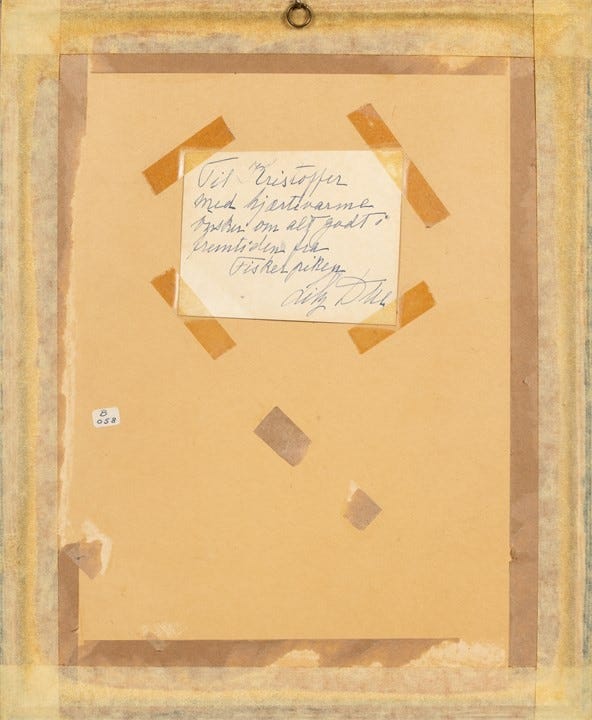 Til Kristoffer
med hjertevarme
ønsker om alt godt i
fremtiden fra
Fiskerpiken
B
058